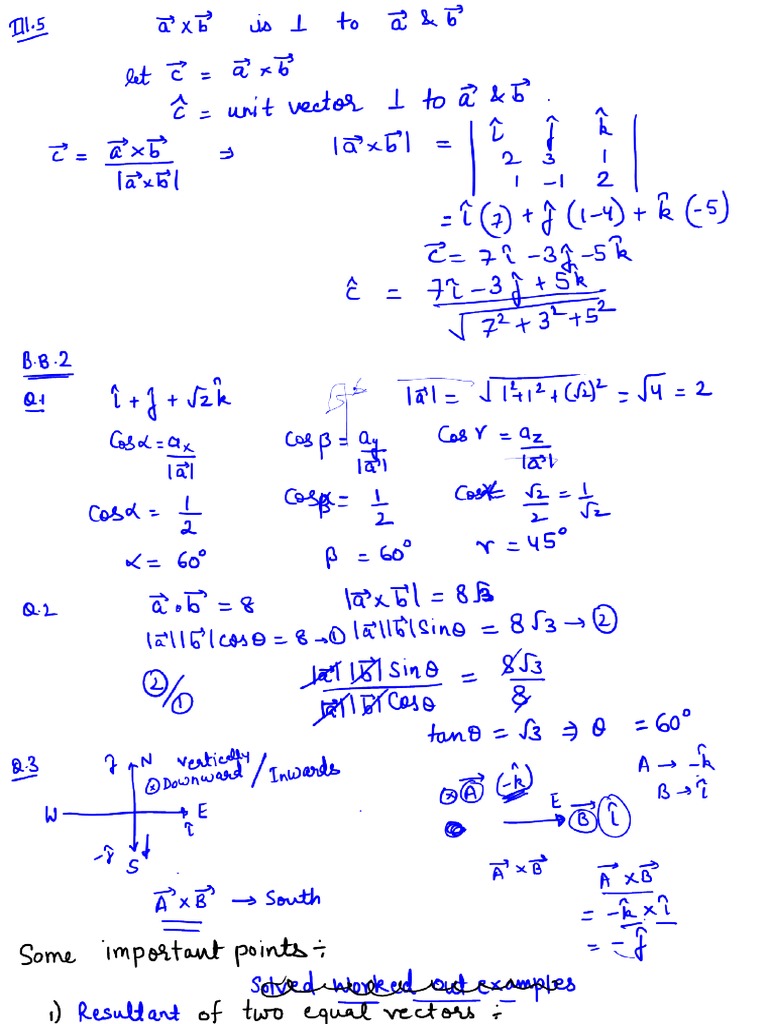 Ill.5 a⃗×b⃗ is ⊥ to a⃗ & b⃗
let c⃗ = a⃗×b⃗
ĉ = unit vector ⊥ to a⃗ & b⃗.
c⃗ = a⃗×b⃗ / |a⃗×b⃗| ⇒ |a⃗×b⃗| = | î ĵ k̂ |
2 3 1
1 -1 2
= î(7) + ĵ(1-4) + k̂(-5)
c⃗ = 7î - 3ĵ - 5k̂
ĉ = 7î - 3ĵ + 5k̂ / √7² + 3² + 5²
B.B.2
Q.1 î + ĵ + √2k̂ |a⃗| = √1²+1²+(√2)² = √4 = 2
Cosα = ax / |a⃗| Cosβ = ay / |a⃗| Cosr = az / |a⃗|
Cosα = 1/2 Cosβ = 1/2 Cosr = √2/2 = 1/√2
α = 60° β = 60° r = 45°
Q.2 a⃗•b⃗ = 8 |a⃗×b⃗| = 8√3
|a⃗||b⃗|cosθ = 8 → ① |a⃗||b⃗|Sinθ = 8√3 → ②
②/① |a⃗||b⃗|Sinθ / |a⃗||b⃗|Cosθ = 8√3 / 8
tanθ = √3 ⇒ θ = 60°
Q.3 ĵ N vertically
⊗ Downward / Inwards
W E
î
-ĵ S
⊗ A⃗ (-k̂) A → -k̂
E B⃗ î B → î
A⃗×B⃗ → South
A⃗×B⃗ A⃗×B⃗
= -k̂×î
= -ĵ
Some important points ÷
Solved worked out examples
1) Resultant of two equal vectors ÷